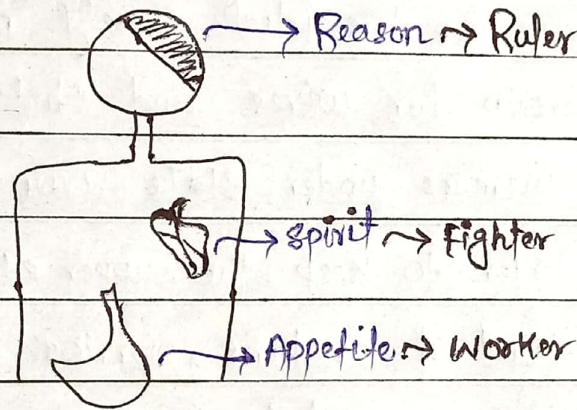 Reason → Ruler
spirit → Fighter
Appetite → Worker